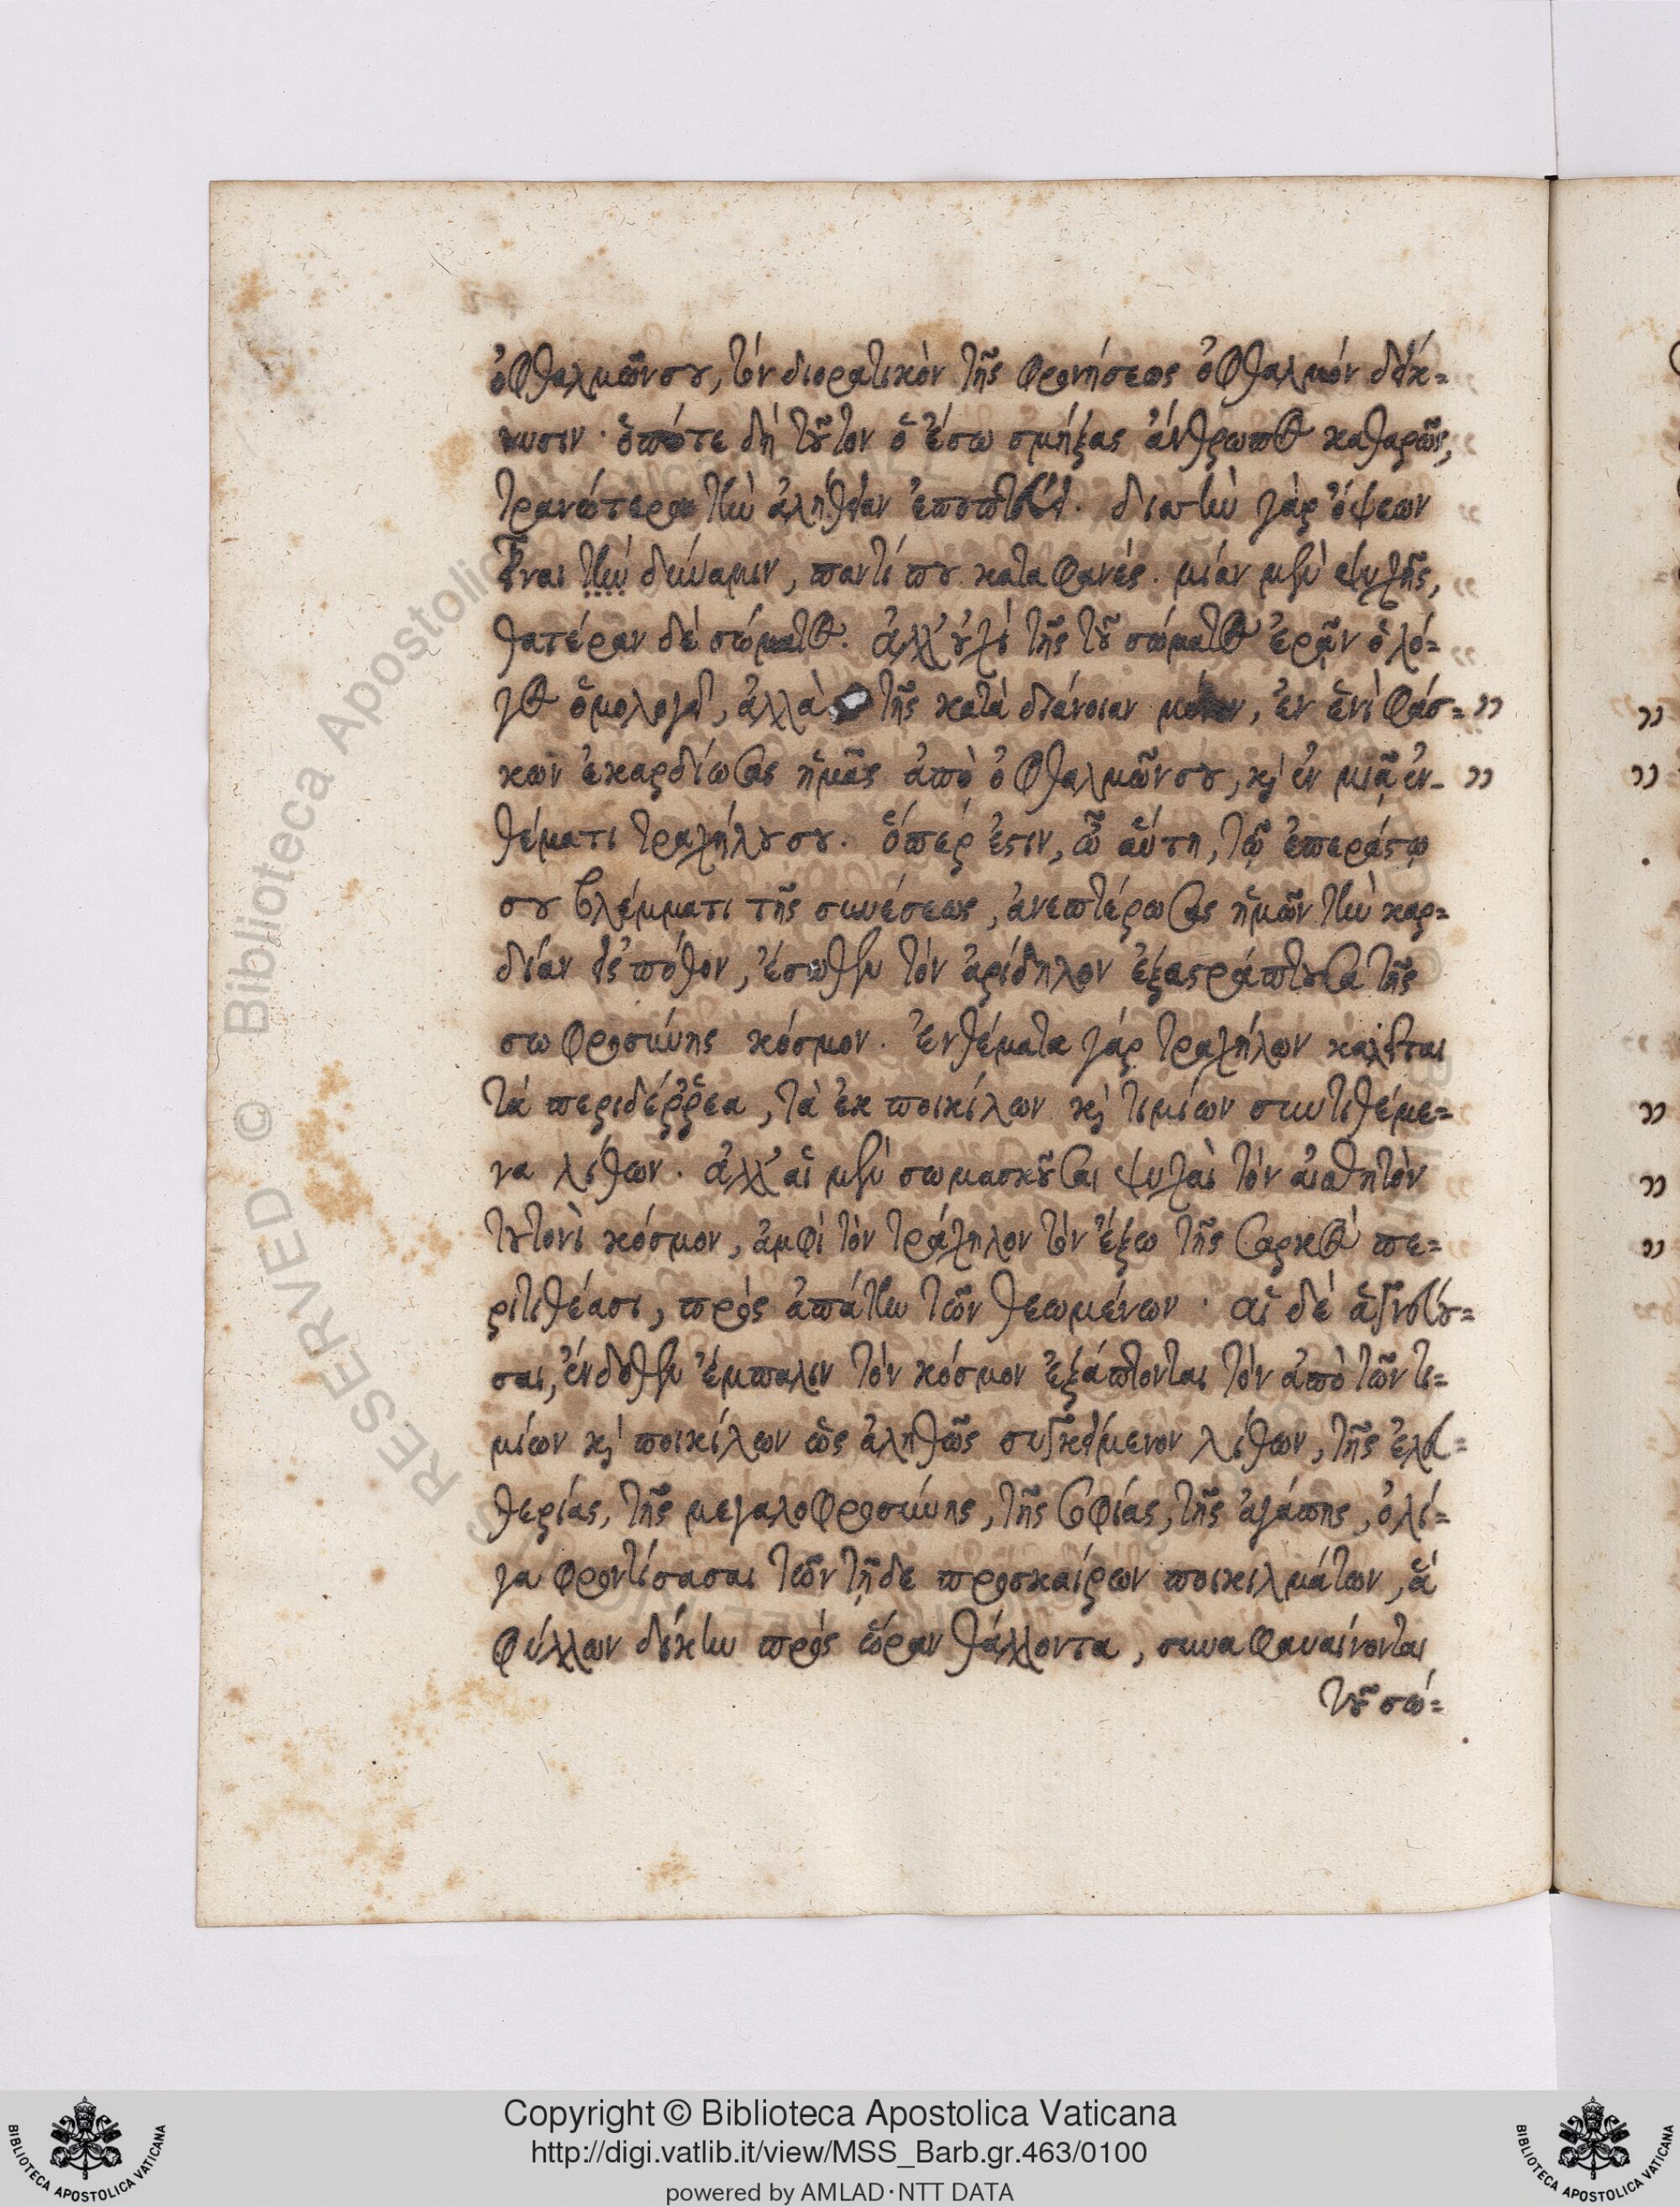 ὀφθαλμῶν σου, τὸν διορατικὸν τῆς φρονήσεως ὀφθαλμόν δείκ=
νυσιν· ὁπότε δὴ τοῦτον ὁ ἔσω σμήξας ἄνθρωπος καθαρῶς,
τρανότερον τὴν ἀλήθειαν ἐποπτεύει. διττὴν γὰρ ὄψεων
εἶναι τὴν δύναμιν, παντί που καταφανές. μίαν μὲν ψυχῆς,
θατέραν δὲ σώματος. ἀλλ' οὐχὶ τῆς τοῦ σώματος ἐρᾶν ὁ λό=
γος ὁμολογεῖ, ἀλλὰ τῆς κατὰ διάνοιαν μόνον, ἐν ἑνὶ φάσ= ”
κων ἐκαρδίωσας ἡμᾶς ἀπὸ ὀφθαλμῶν σου, κ̀ ἐν μιᾷ ἐν- ”
θέματι τραχήλου σου. ὅπερ ἐστιν, ὦ αὕτη, τῷ ἐπεράστῳ
σου βλέμματι τῆς συνέσεως, ἀνεπτέρωσας ἡμῶν τὴν καρ=
δίαν εἰς πόθον, ἔσωθεν τὸν ἀρίδηλον ἐξαστράπτουσα τῆς
σωφροσύνης κόσμον. ἐνθέματα γάρ τραχήλων καλεῖται
τὰ περιδέῤῥεα, τὰ ἐκ ποικίλων κ̀ τιμίων συντιθέμε=
να λίθων. ἀλλ' αἱ μὲν σωμασκοῦσαι ψυχαὶ τὸν αἰσθητὸν
τουτονὶ κόσμον, ἀμφὶ τὸν τράχηλον τὸν ἔξω τῆς σαρκὸς πε=
ριτιθέασι, πρὸς ἀπάτην τῶν θεωμένων· αἱ δὲ ἁγνεύου=
σαι, ἔνδοθεν ἔμπαλιν τὸν κόσμον ἐξάπτονται τὸν ἀπὸ τῶν τι=
μίων κ̀ ποικίλων ὡς ἀληθῶς συγκείμενον λίθων, τῆς ἐλευ=
θερίας, τῆς μεγαλοφροσύνης, τῆς σοφίας, τῆς ἀγάπης, ὀλί=
γα φροντίσασαι τῶν τῇδε προσκαίρων ποικιλμάτων, ἃ
φύλλων δίκην πρὸς ὥραν θάλλοντα, συναφαυαίνονται
τοῦ σώ=
RESERVED © Biblioteca Apostolica
Copyright © Biblioteca Apostolica Vaticana
http://digi.vatlib.it/view/MSS_Barb.gr.463/0100
powered by AMLAD·NTT DATA
BIBLIOTECA APOSTOLICA VATICANA
BIBLIOTECA APOSTOLICA VATICANA